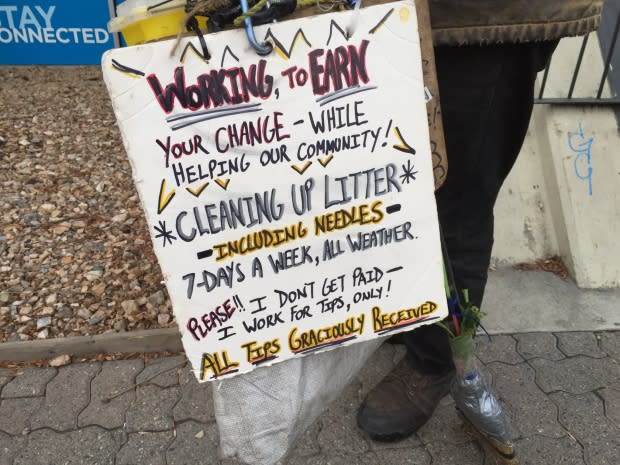 STAY
CONNECTED
WORKING, TO EARN
YOUR CHANGE - WHILE
HELPING OUR COMMUNITY!
*CLEANING UP LITTER*
- INCLUDING NEEDLES -
7-DAYS A WEEK, ALL WEATHER.
PLEASE!! I DON'T GET PAID -
I WORK FOR TIPS, ONLY!
ALL TIPS GRACIOUSLY RECEIVED